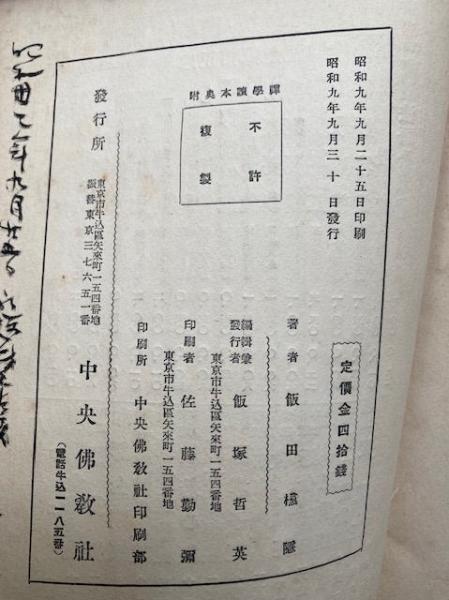 昭和九年九月二十五日印刷
昭和九年九月三十日發行
禪學讀本奥附
不許
複製
定價金四拾錢
著者 飯田欓隱
編輯兼
發行者 飯塚哲英
東京市牛込區矢來町一五四番地
印刷者 佐藤勤彌
東京市牛込區矢來町一五四番地
印刷所 中央佛敎社印刷部
發行所
東京市牛込區矢來町一五四番地
振替東京三七六五一番
中央佛敎社
(電話牛込一一八五番)